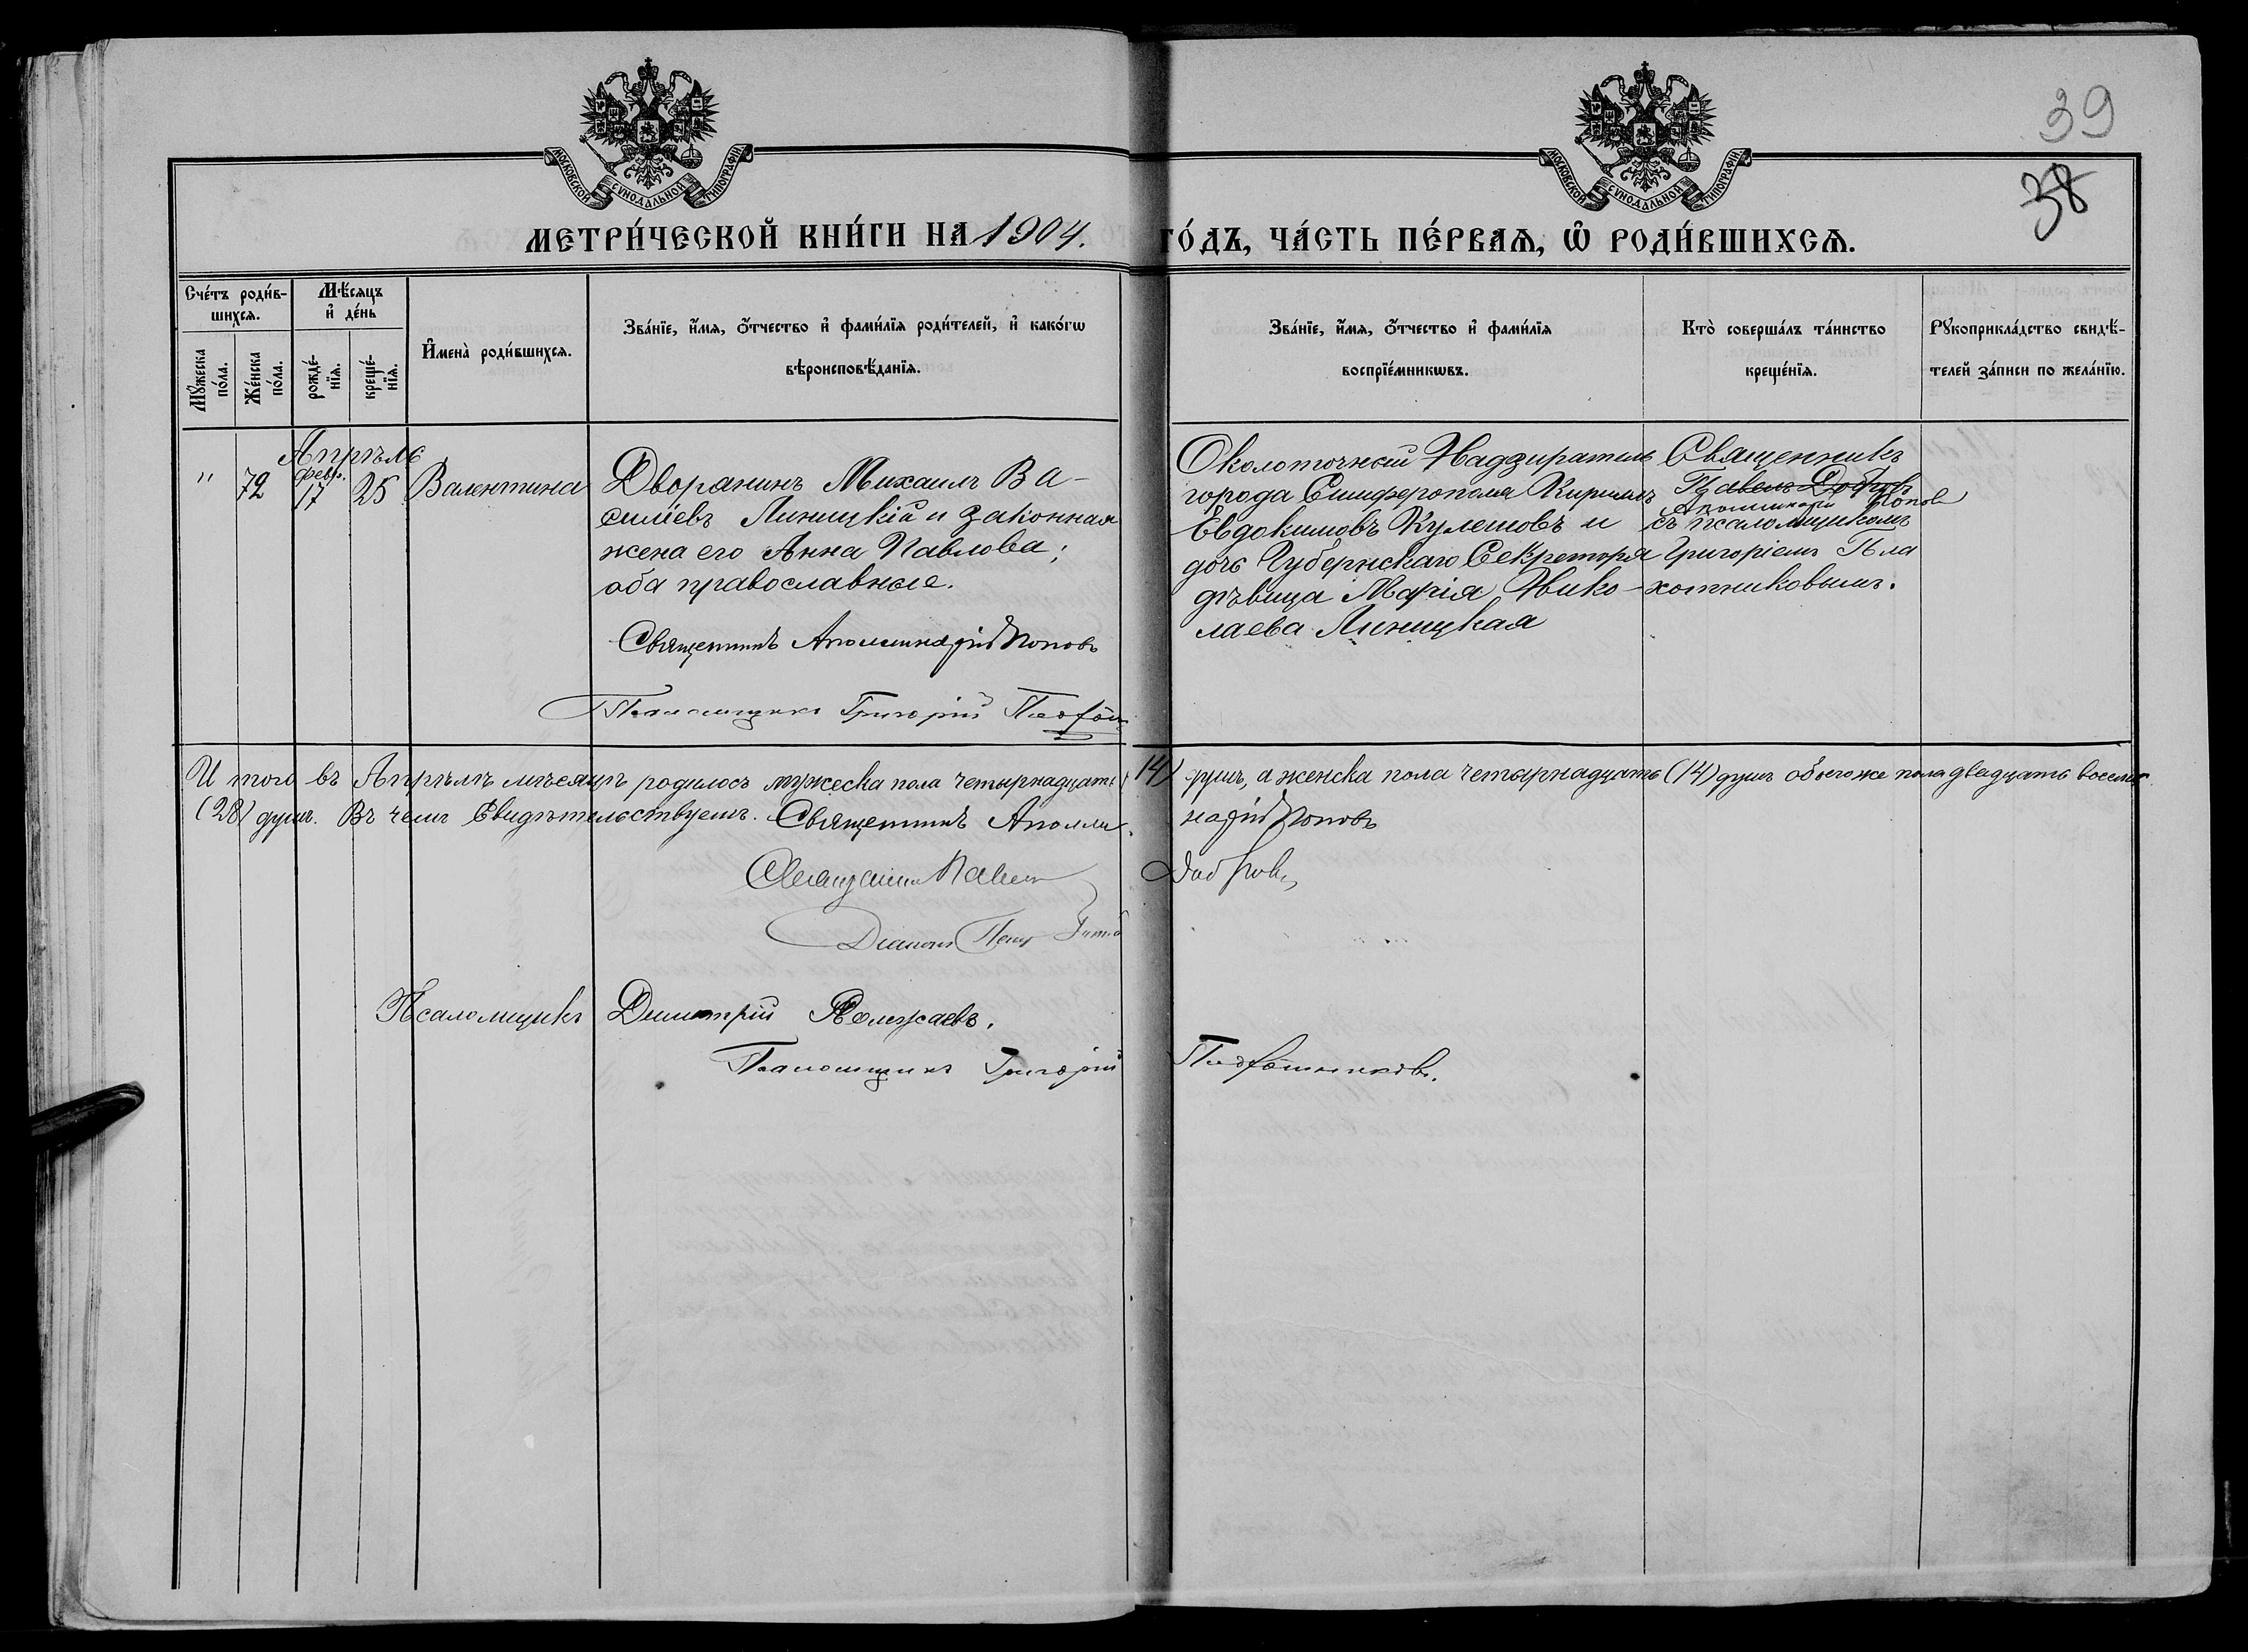 39
38
МОСКОВСКОЙ СѴНОДАЛЬНОЙ ТИПОГРАФІИ
МОСКОВСКОЙ СѴНОДАЛЬНОЙ ТИПОГРАФІИ
МЕТРИ́ЧЕСКОЙ КНИ́ГИ НА 1904. ГО́ДЪ, ЧА́СТЬ ПЕ́РВАѦ, Ѿ РОДИ́ВШИХСѦ.
Сче́тъ роди́в-
шихсѧ.
Мꙋ́жеска
по́ла.
Же́нска
по́ла.
Мѣ́сѧцъ
и҆ де́нь
рожде́-
нїѧ.
креще́-
нїѧ.
И҆мена̀ роди́вшихсѧ.
Зва́нїе, и҆́мѧ, о҆́тчество и҆ фами́лїѧ роди́телей, и҆ како́гѡ
вѣроисповѣ́данїѧ.
Зва́нїе, и҆́мѧ, о҆́тчество и҆ фами́лїѧ
воспрїе́мникѡвъ.
Кто̀ соверша́лъ та́инство
креще́нїѧ.
Рꙋкоприкла́дство свидѣ́-
телей за́писи по жела́нїю.
Апрѣль
" 72
февр.
17 25
Валентина
Дворанинъ Михаилъ Ва-
силіевъ Линицкій и законная
жена его Анна Павлова;
оба православные.
Священникъ Аполлинарій Поповъ
Псаломщикъ Григорій
Околоточный Надзиратель
города Симферополя Кириллъ
Евдокимовъ Кулешовъ и
дочь Губернскаго Секретаря
дѣвица Марія Нико-
лаева Линицкая
Священникъ
Павелъ Добровъ
Аполлинарій Поповъ
съ псаломщикомъ
Григоріемъ Пла
хотниковымъ.
И того въ Апрѣлѣ мѣсяцѣ родилось мужеска пола четырнадцать (14) душъ, а женска пола четырнадцать (14) душъ обоего же пола двадцать восемь
(28) душъ. Въ чемъ Свидѣтельствуемъ. Священникъ Аполли-
нарій Поповъ
Священникъ Павелъ Добровъ
Діаконъ Петръ
Псаломщикъ Димитрій Полежаевъ.
Псаломщикъ Григорій Плахотниковъ.